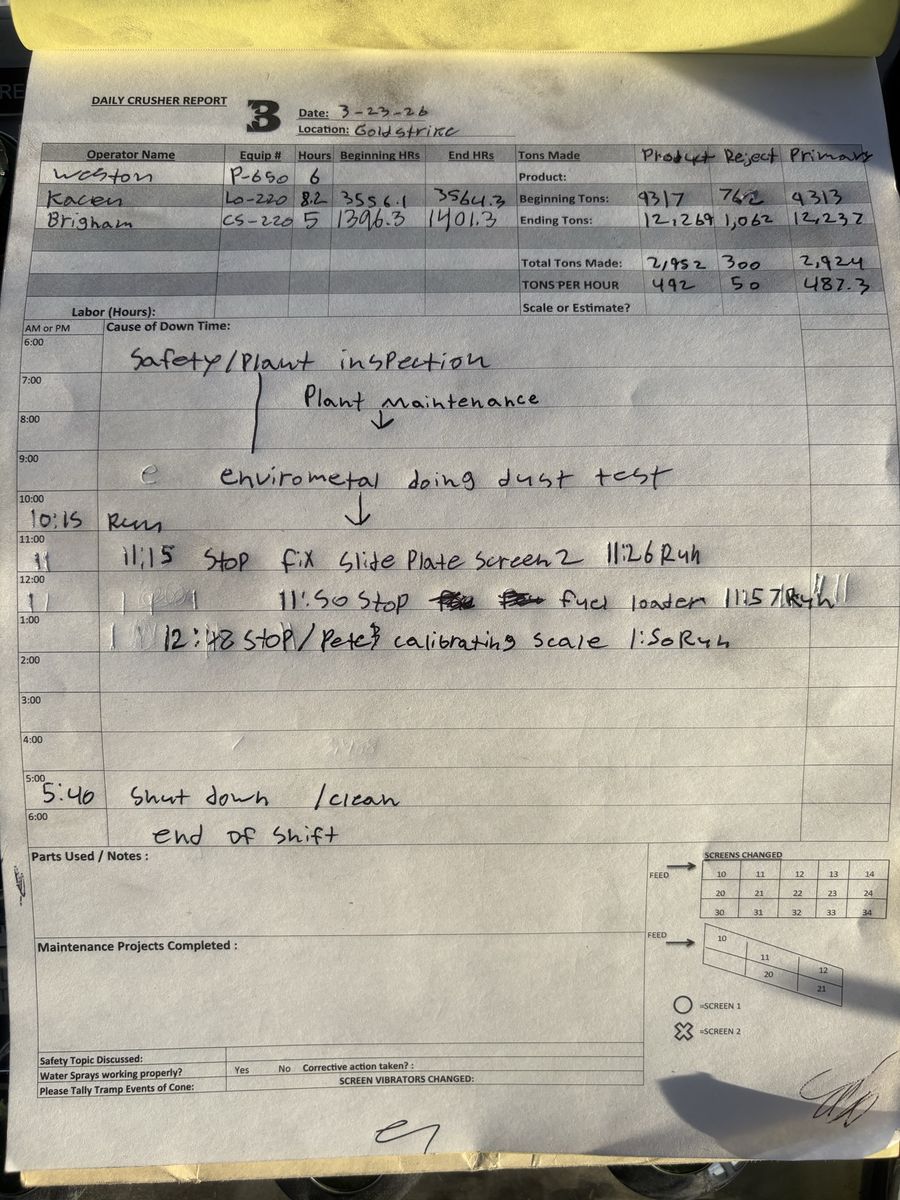 DAILY CRUSHER REPORT
3
Date: 3-23-26
Location: Goldstrike
Operator Name Equip # Hours Beginning HRs End HRs Tons Made Product Reject Primary
Weston P-650 6 Product:
Kacen Lo-220 8.2 3556.1 3564.3 Beginning Tons: 9317 762 9313
Brigham CS-220 5 1396.3 1401.3 Ending Tons: 12,269 1,062 12,237
Total Tons Made: 2,952 300 2,924
TONS PER HOUR 492 50 487.3
Labor (Hours): Scale or Estimate?
AM or PM Cause of Down Time:
6:00
Safety/Plant inspection
7:00
Plant Maintenance
8:00
9:00
e envirometal doing dust test
10:00
10:15 Run
11:00
11:15 Stop fix Slide Plate Screen 2 11:26 Run
12:00
11:50 Stop fuel loader 11:57 Run
1:00
12:48 Stop/Pete's calibrating scale 1:50 Run
2:00
3:00
4:00
5:00
5:40 Shut down /clean
6:00
end of shift
Parts Used / Notes :
SCREENS CHANGED
FEED
10 11 12 13 14
20 21 22 23 24
30 31 32 33 34
Maintenance Projects Completed :
FEED
10
11
12
20
21
=SCREEN 1
=SCREEN 2
Safety Topic Discussed:
Water Sprays working properly? Yes No Corrective action taken? :
Please Tally Tramp Events of Cone: SCREEN VIBRATORS CHANGED: